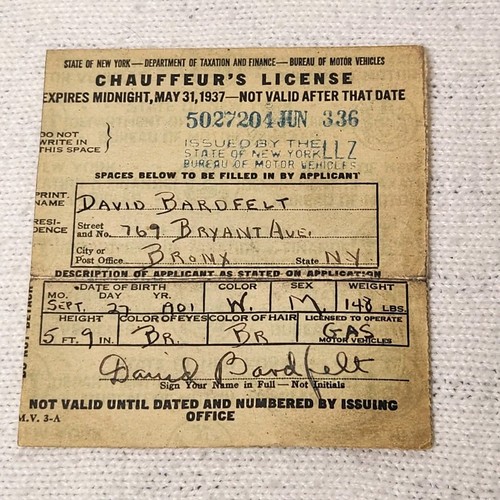 STATE OF NEW YORK — DEPARTMENT OF TAXATION AND FINANCE — BUREAU OF MOTOR VEHICLES
CHAUFFEUR'S LICENSE
EXPIRES MIDNIGHT, MAY 31, 1937—NOT VALID AFTER THAT DATE
5027204 JUN 3 36
DO NOT
WRITE IN
THIS SPACE
ISSUED BY THE
STATE OF NEW YORK LLZ
BUREAU OF MOTOR VEHICLES
SPACES BELOW TO BE FILLED IN BY APPLICANT
PRINT NAME DAVID BARDFELT
RESI-
DENCE
Street and No. 769 BRYANT AVE.
City or Post Office BRONX State NY
DESCRIPTION OF APPLICANT AS STATED ON APPLICATION
DATE OF BIRTH COLOR SEX WEIGHT
MO. DAY YR.
SEPT. 27 W. M. 148 LBS.
HEIGHT COLOR OF EYES COLOR OF HAIR LICENSED TO OPERATE
5 FT. 9 IN. BR. BR GAS
MOTOR VEHICLES
David Bardfelt
Sign Your Name in Full — Not Initials
NOT VALID UNTIL DATED AND NUMBERED BY ISSUING
OFFICE
M.V. 3-A